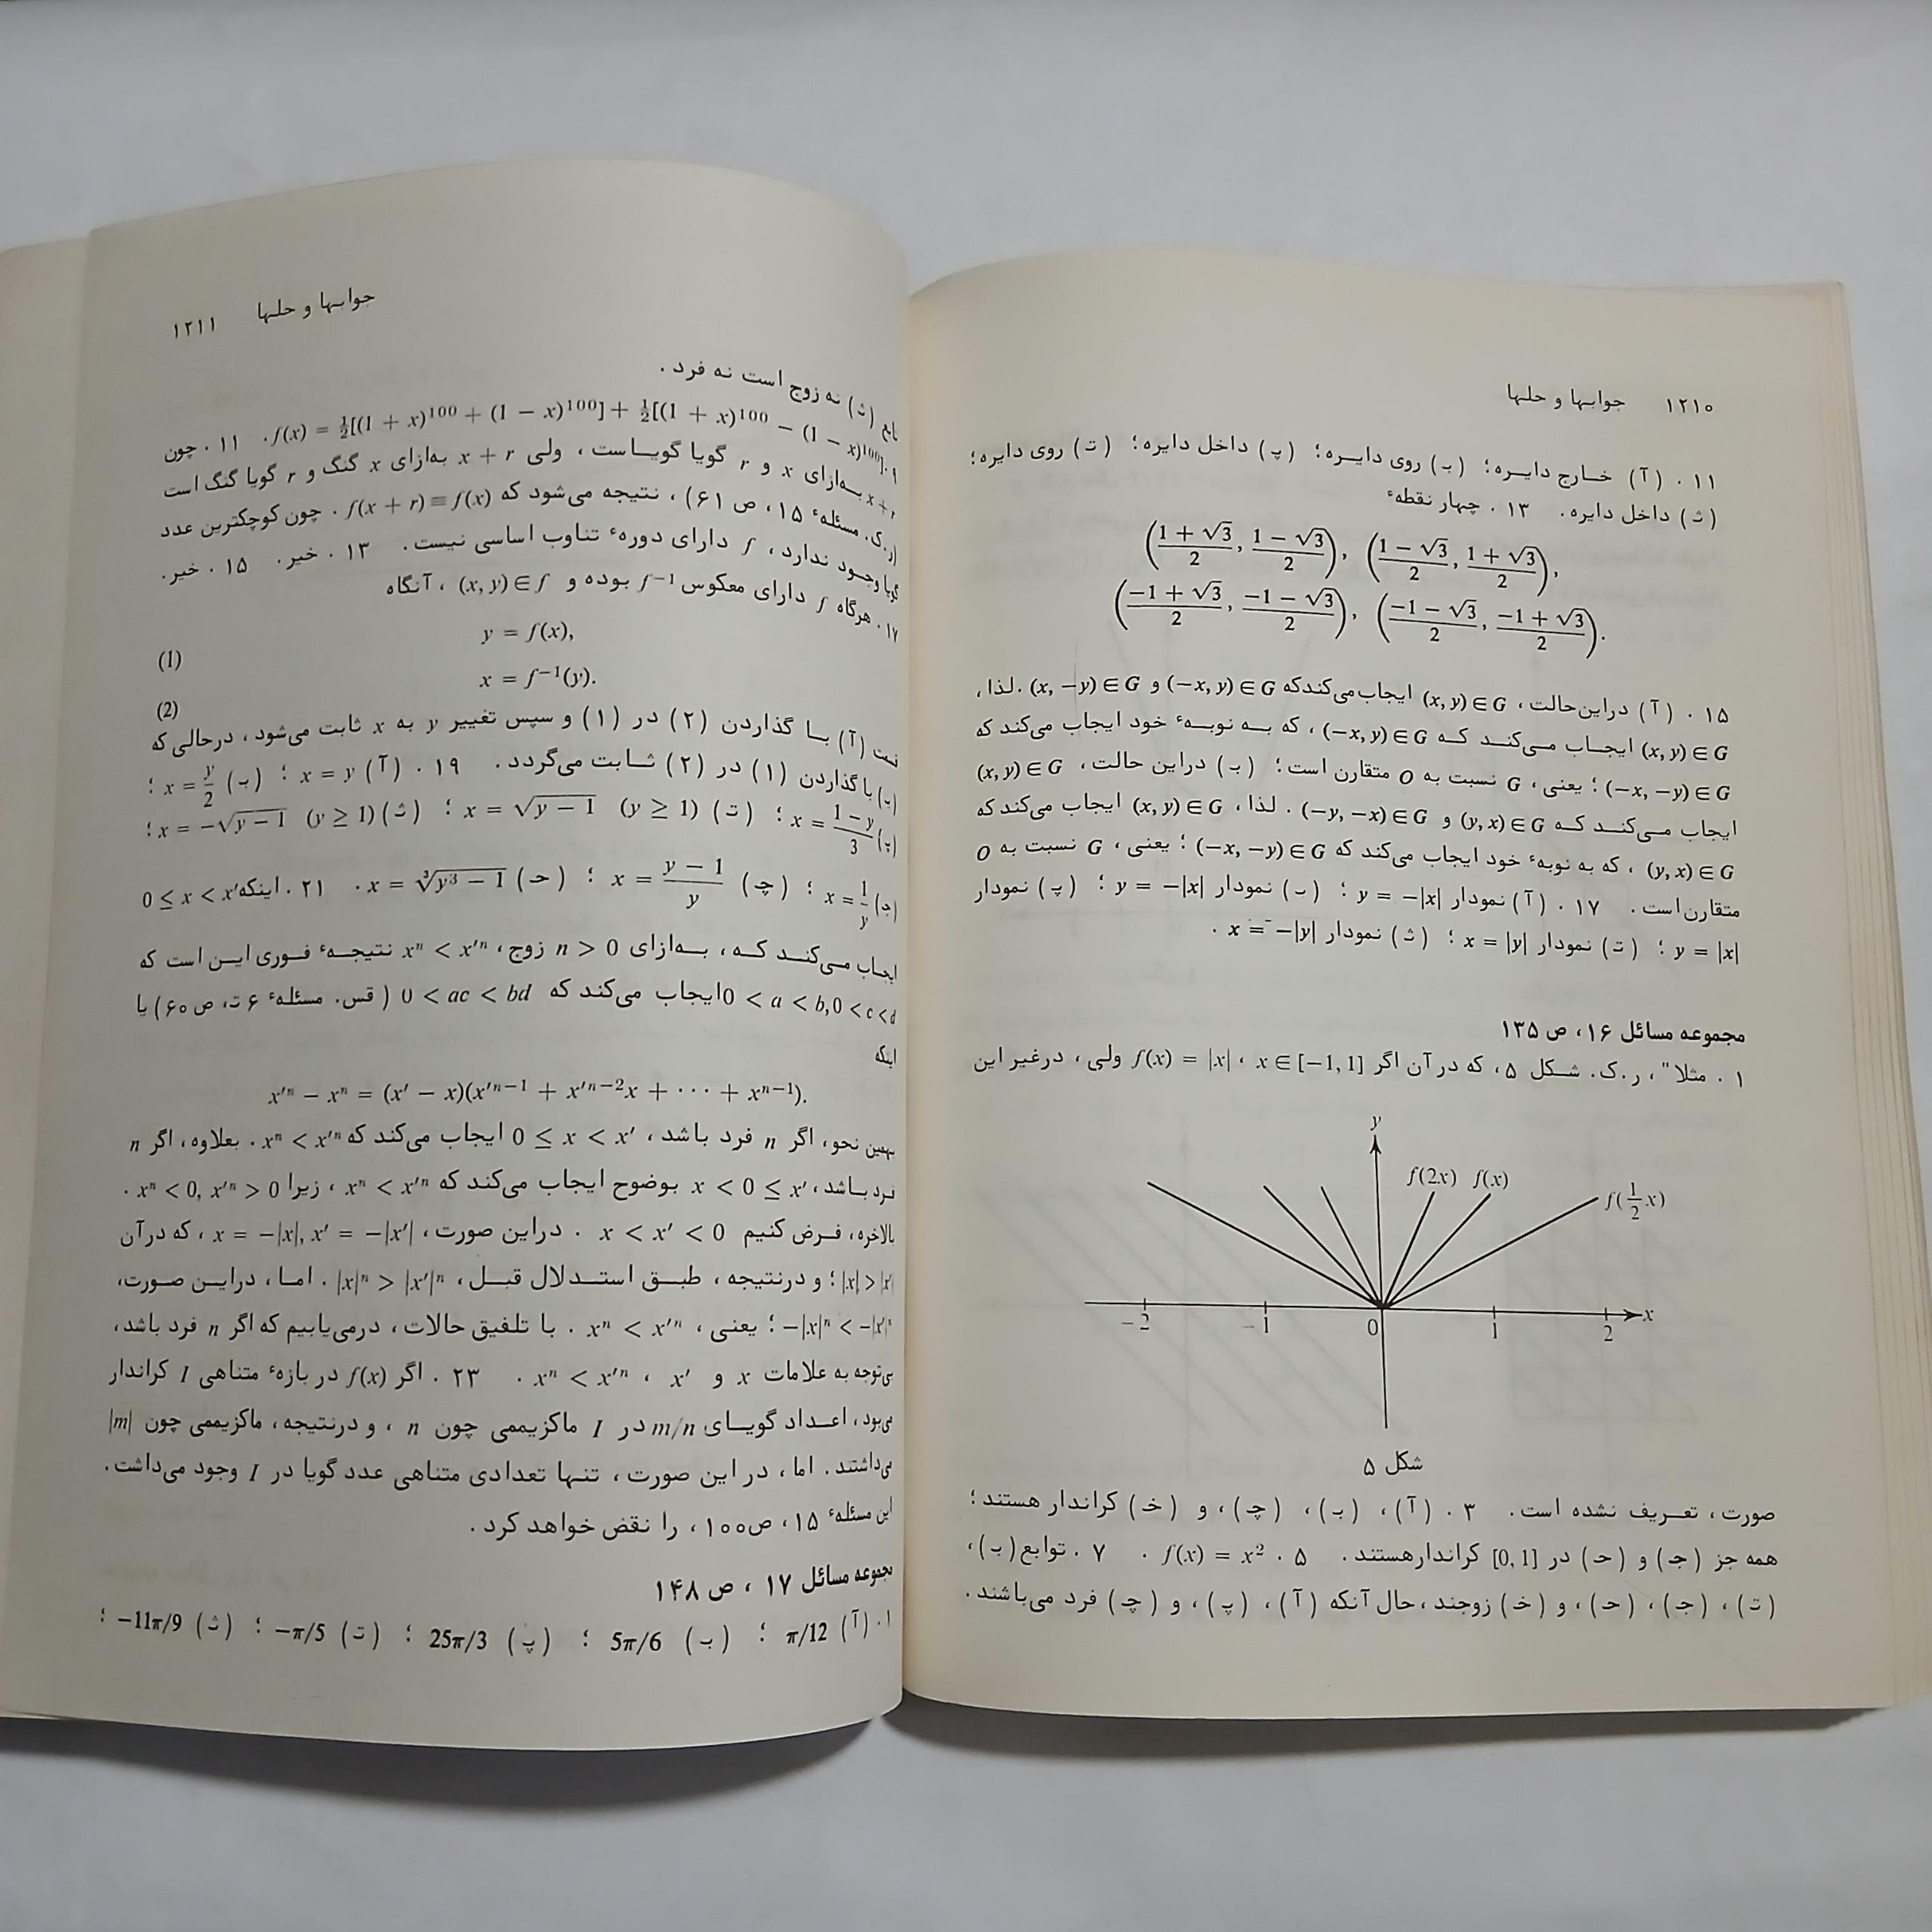 ۱۲۱۰ جوابها و حلها
۱۱ . (آ) خارج دایره؛ (ب) روی دایره؛ (پ) داخل دایره؛ (ت) روی دایره؛
(ث) داخل دایره. ۱۳ . چهار نقطهٔ
((1 + √3)/2, (1 − √3)/2), ((1 − √3)/2, (1 + √3)/2),
((−1 + √3)/2, (−1 − √3)/2), ((−1 − √3)/2, (−1 + √3)/2).
۱۵ . (آ) دراین حالت، (x, y) ∈ G ایجاب می‌کند که (−x, y) ∈ G و (x, −y) ∈ G . لذا،
(x, y) ∈ G ایجاب می‌کند که (−x, y) ∈ G ، که به نوبهٔ خود ایجاب می‌کند که
(−x, −y) ∈ G ؛ یعنی، G نسبت به O متقارن است؛ (ب) دراین حالت، (x, y) ∈ G
ایجاب می‌کند که (y, x) ∈ G و (−y, −x) ∈ G . لذا، (x, y) ∈ G ایجاب می‌کند که
(y, x) ∈ G ، که به نوبهٔ خود ایجاب می‌کند که (−x, −y) ∈ G ؛ یعنی، G نسبت به O
متقارن است. ۱۷ . (آ) نمودار y = −|x| ؛ (ب) نمودار y = −|x| ؛ (پ) نمودار
y = |x| ؛ (ت) نمودار x = |y| ؛ (ث) نمودار x = −|y| .
مجموعه مسائل ۱۶، ص ۱۳۵
۱ . مثلا"، ر.ک. شکل ۵، که در آن اگر x ∈ [−1, 1] ، f(x) = |x| ولی، درغیر این
y
f(2x) f(x)
f(1/2 x)
−2 −1 0 1 2 x
شکل ۵
صورت، تعریف نشده است. ۳ . (آ)، (ب)، (چ)، و (خ) کراندار هستند؛
همه جز (ج) و (ح) در [0, 1] کراندارهستند. ۵ . f(x) = x² . ۷ . توابع (ب)،
(ت)، (ج)، (ح)، و (خ) زوجند، حال آنکه (آ)، (پ)، و (چ) فرد می‌باشند.
جوابها و حلها ۱۲۱۱
تابع (ث) نه زوج است نه فرد .
۹ . f(x) = ½[(1 + x)¹⁰⁰ + (1 − x)¹⁰⁰] + ½[(1 + x)¹⁰⁰ − (1 − x)¹⁰⁰]. ۱۱ . چون
x + r به‌ازای x و r گویا گویاست، ولی x + r به‌ازای x گنگ و r گویا گنگ است
(ر.ک. مسئلهٔ ۱۵، ص ۶۱)، نتیجه می‌شود که f(x + r) ≡ f(x) . چون کوچکترین عدد
گویا وجود ندارد، f دارای دورهٔ تناوب اساسی نیست. ۱۳ . خیر. ۱۵ . خیر.
۱۷ . هرگاه f دارای معکوس f⁻¹ بوده و (x, y) ∈ f ، آنگاه
(1) y = f(x),
(2) x = f⁻¹(y).
(آ) با گذاردن (۲) در (۱) و سپس تغییر y به x ثابت می‌شود، درحالی که
(ب) با گذاردن (۱) در (۲) ثابت می‌گردد. ۱۹ . (آ) x = y ؛ (ب) x = y/2 ؛
(پ) x = (1 − y)/3 ؛ (ت) x = √(y − 1) (y ≥ 1) ؛ (ث) x = −√(y − 1) (y ≥ 1) ؛
(ج) x = 1/y ؛ (چ) x = (y − 1)/y ؛ (ح) x = ∛(y³ − 1) . ۲۱ . اینکه 0 ≤ x < x′
ایجاب می‌کند که، به‌ازای n > 0 زوج، xⁿ < x′ⁿ نتیجهٔ فوری این است که
0 < a < b, 0 < c < d ایجاب می‌کند که 0 < ac < bd (قس. مسئلهٔ ۶ ت، ص ۶۰) یا
اینکه
x′ⁿ − xⁿ = (x′ − x)(x′ⁿ⁻¹ + x′ⁿ⁻²x + ⋯ + xⁿ⁻¹).
بهمین نحو، اگر n فرد باشد، 0 ≤ x < x′ ایجاب می‌کند که xⁿ < x′ⁿ . بعلاوه، اگر n
فرد باشد، x < 0 ≤ x′ بوضوح ایجاب می‌کند که xⁿ < x′ⁿ ، زیرا xⁿ < 0, x′ⁿ > 0 .
بالاخره، فرض کنیم x < x′ < 0 . دراین صورت، x = −|x|, x′ = −|x′| ، که در آن
|x| > |x′| ؛ و درنتیجه، طبق استدلال قبل، |x|ⁿ > |x′|ⁿ . اما، دراین صورت،
−|x|ⁿ < −|x′|ⁿ ؛ یعنی، xⁿ < x′ⁿ . با تلفیق حالات، درمی‌یابیم که اگر n فرد باشد،
بی‌توجه به علامات x و x′ ، xⁿ < x′ⁿ . ۲۳ . اگر f(x) در بازهٔ متناهی I کراندار
می‌بود، اعداد گویای m/n در I ماکزیممی چون n ، و درنتیجه، ماکزیممی چون |m|
می‌داشتند. اما، در این صورت، تنها تعدادی متناهی عدد گویا در I وجود می‌داشت.
این مسئلهٔ ۱۵، ص ۱۰۰، را نقض خواهد کرد.
مجموعه مسائل ۱۷ ، ص ۱۴۸
۱ . (آ) π/12 ؛ (ب) 5π/6 ؛ (پ) 25π/3 ؛ (ت) −π/5 ؛ (ث) −11π/9 ؛